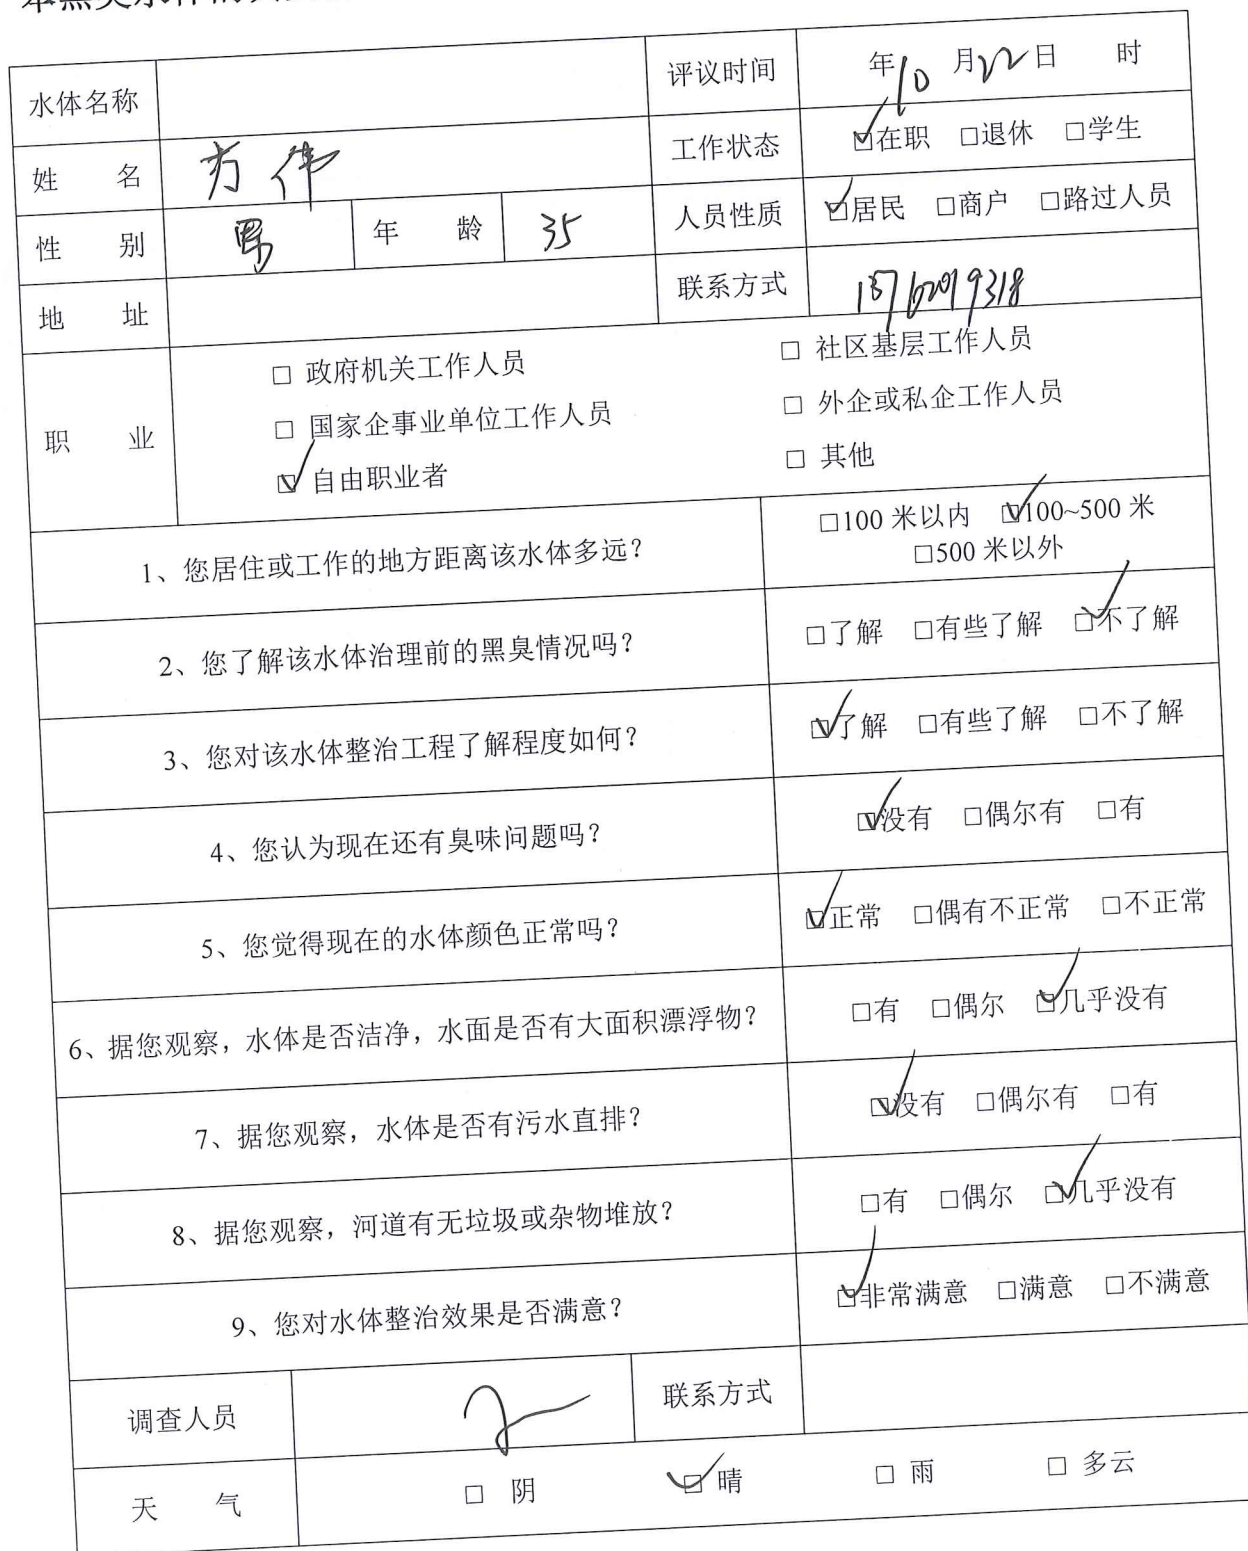 水体名称 评议时间 年10月22日 时
姓 名 方伟 工作状态 ☑在职 □退休 □学生
性 别 男 年 龄 35 人员性质 ☑居民 □商户 □路过人员
地 址 联系方式
职 业
□ 政府机关工作人员 □ 社区基层工作人员
□ 国家企事业单位工作人员 □ 外企或私企工作人员
☑ 自由职业者 □ 其他
1、您居住或工作的地方距离该水体多远? □100 米以内 ☑100~500 米
□500 米以外
2、您了解该水体治理前的黑臭情况吗? □了解 □有些了解 ☑不了解
3、您对该水体整治工程了解程度如何? ☑了解 □有些了解 □不了解
4、您认为现在还有臭味问题吗? ☑没有 □偶尔有 □有
5、您觉得现在的水体颜色正常吗? ☑正常 □偶有不正常 □不正常
6、据您观察，水体是否洁净，水面是否有大面积漂浮物? □有 □偶尔 ☑几乎没有
7、据您观察，水体是否有污水直排? ☑没有 □偶尔有 □有
8、据您观察，河道有无垃圾或杂物堆放? □有 □偶尔 ☑几乎没有
9、您对水体整治效果是否满意? ☑非常满意 □满意 □不满意
调查人员 联系方式
天 气 □ 阴 ☑ 晴 □ 雨 □ 多云